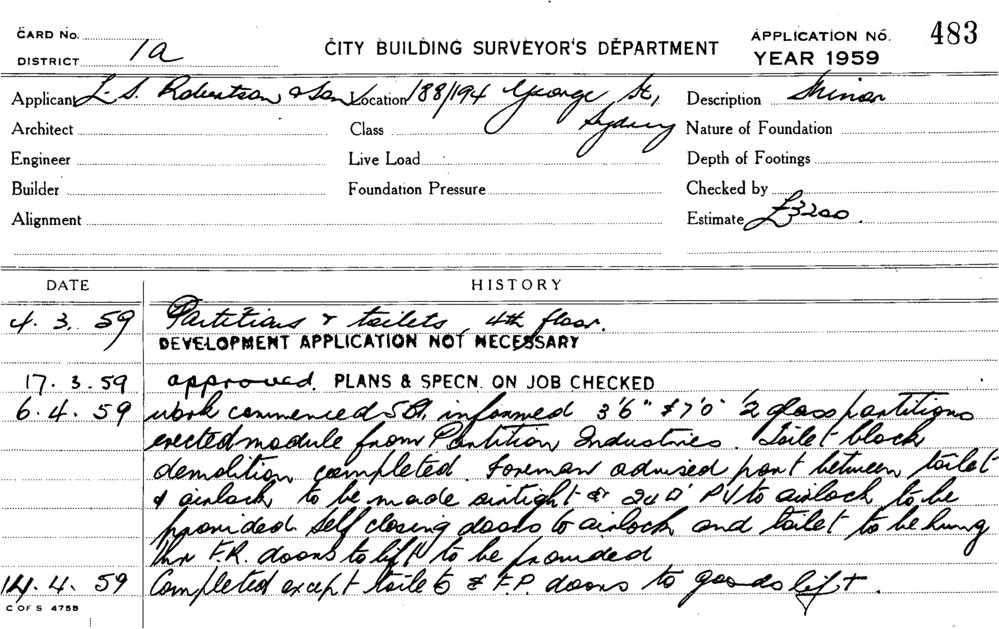 CARD No.
DISTRICT 1a
CITY BUILDING SURVEYOR'S DEPARTMENT
APPLICATION No. 483
YEAR 1959
Applicant L. S. Robertson & Son Location 188/194 George St, Sydney Description Minor
Architect Class Nature of Foundation
Engineer Live Load Depth of Footings
Builder Foundation Pressure Checked by
Alignment Estimate £3200.
DATE HISTORY
4. 3. 59 Partitions & toilets, 4th floor.
DEVELOPMENT APPLICATION NOT NECESSARY
17. 3. 59 approved. PLANS & SPECN. ON JOB CHECKED
6. 4. 59 work commenced informed 3'6" & 7'0" glass partitions
erected module from Partition Industries. Toilet block
demolition completed. Foreman advised part between toilet
& airlock to be made airtight & 240" PV to airlock to be
provided. Self closing doors to airlock and toilet to be hung
F.R. doors to lift to be provided
14. 4. 59 Completed except toilets & F.P. doors to goods lift.
C OF S 475B